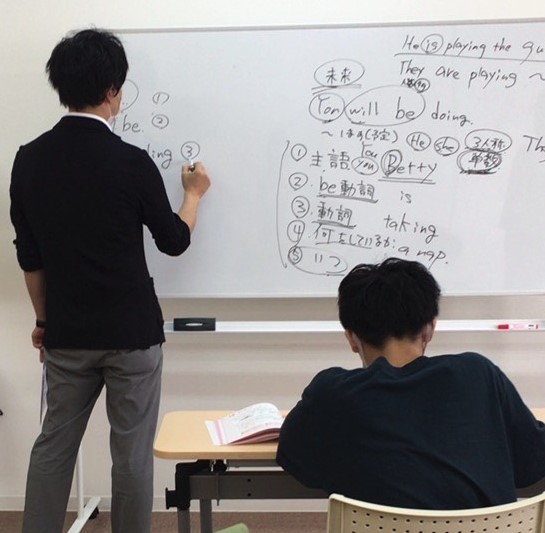 ①
be. ②
ing ③
He is playing the gu
They are playing ~
未来
You will be doing.
~はず(予定) He she 3人称 Th
単数
① 主語 You you Betty
② be動詞 is
③ 動詞 taking
④ 何をしているか: a nap.
⑤ いつ